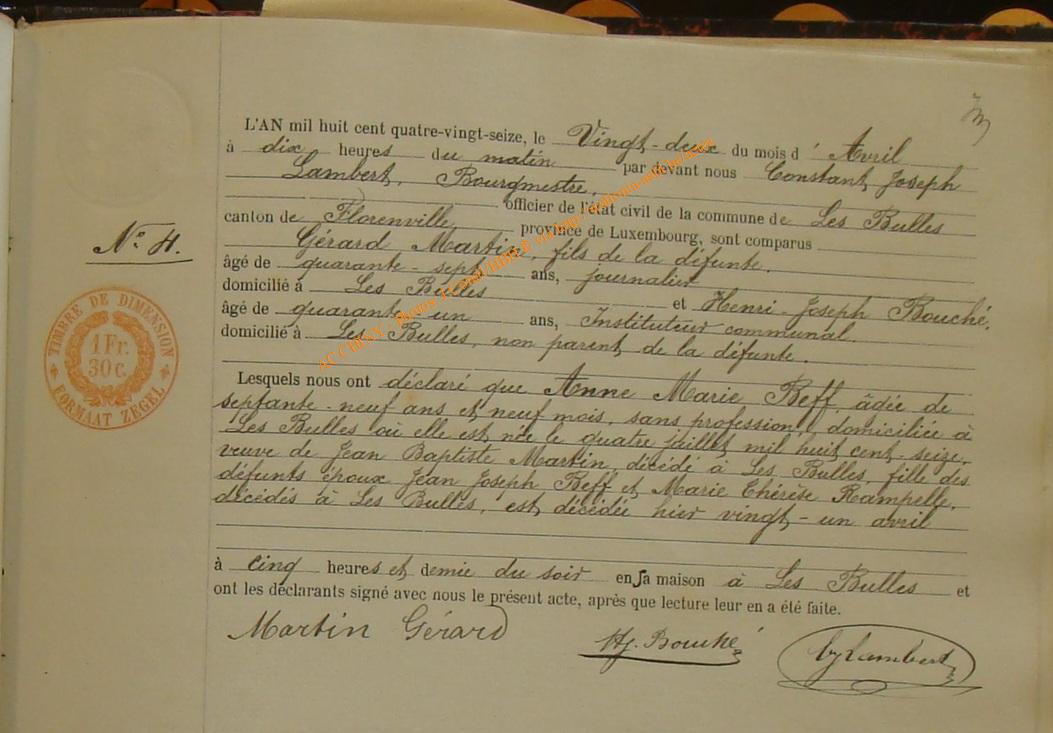 L'AN mil huit cent quatre-vingt-seize, le Vingt-deux du mois d' Avril
à dix heures du matin par devant nous Constant Joseph
Lambert, Bourgmestre,
officier de l'état civil de la commune de Les Bulles
canton de Florenville province de Luxembourg, sont comparus
Gérard Martin, fils de la défunte,
âgé de quarante-sept ans, journalier
domicilié à Les Bulles et Henri-Joseph Bouché,
âgé de quarante un ans, Instituteur communal.
domicilié à Les Bulles, non parent de la défunte.
Lesquels nous ont déclaré que Anne Marie Beff, âgée de
septante-neuf ans et neuf mois, sans profession, domiciliée à
Les Bulles où elle est née le quatre juillet mil huit cent-seize,
veuve de Jean Baptiste Martin, décédé à Les Bulles, fille des
défunts époux Jean Joseph Beff et Marie Thérèse Rampelle,
décédés à Les Bulles, est décédée hier vingt-un avril
à cinq heures et demie du soir en sa maison à Les Bulles et
ont les déclarants signé avec nous le présent acte, après que lecture leur en a été faite.
Martin Gérard
Hj. Bouché
Lambert
N° 4.
TIMBRE DE DIMENSION
1 Fr.
30 c.
FORMAAT ZEGEL